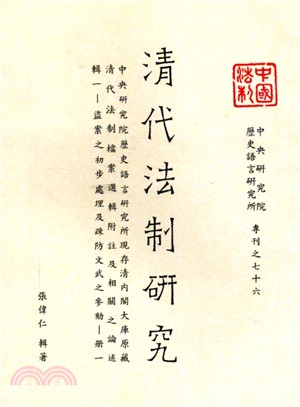 中國
法制
中央研究院
歷史語言研究所
專刊之七十六
清代法制研究
中央研究院歷史語言研究所現存清內閣大庫原藏
清代法制檔案選輯附註及相關之論述
輯一—盜案之初步處理及疎防文武之參劾—册一
張偉仁 輯著